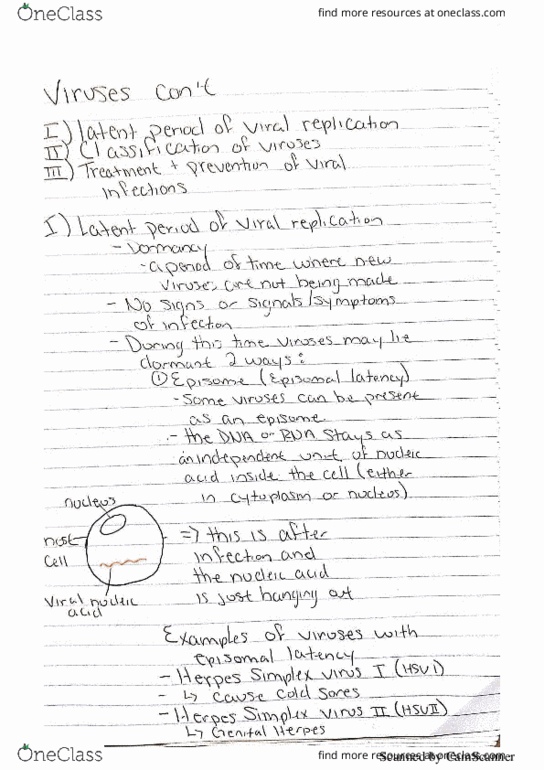 OneClass
find more resources at oneclass.com
Viruses con't
I) latent period of viral replication
II) Classification of viruses
III) Treatment + prevention of viral
infections
I) Latent period of viral replication
- Dormancy
- a period of time where new
viruses are not being made
- No signs or signals/symptoms
of infection
- During this time viruses may be
dormant 2 ways:
① Episome (Episomal latency)
- Some viruses can be present
as an episome
- the DNA or RNA stays as
an independent unit of nucleic
acid inside the cell (either
in cytoplasm or nucleus)
nucleus
host
cell
viral nucleic
acid
=> this is after
infection and
the nucleic acid
is just hanging out
Examples of viruses with
episomal latency
- Herpes Simplex virus I (HSV I)
- ↳ cause cold sores
- Herpes Simplex virus II (HSV II)
↳ Genital Herpes
OneClass
find more resources at oneclass.com
Scanned by CamScanner